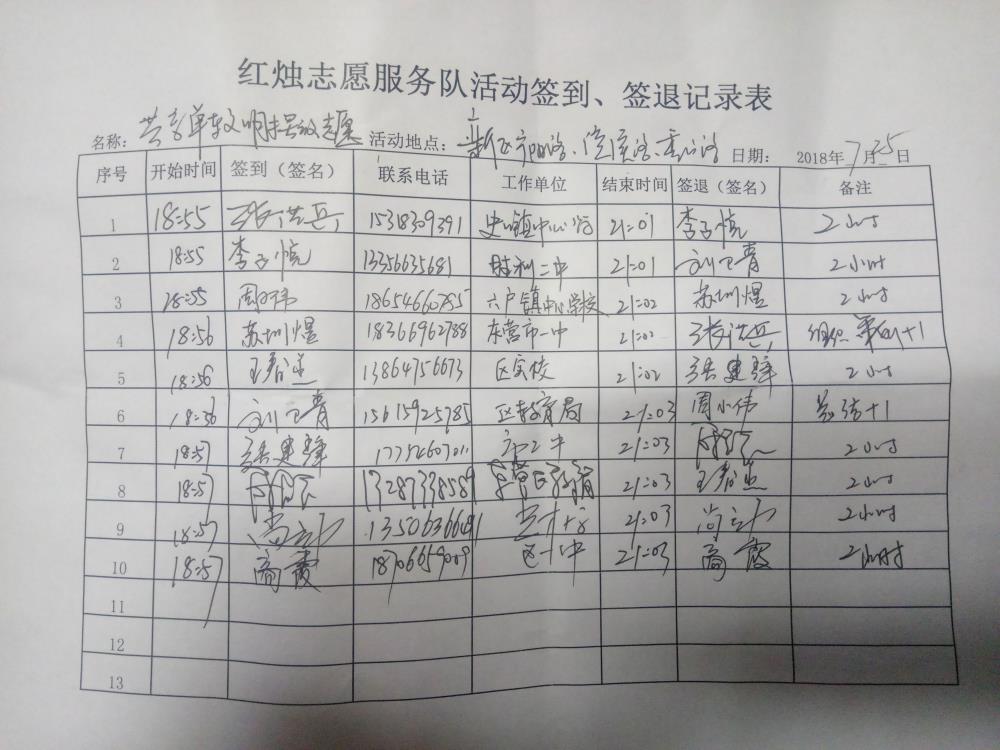 红烛志愿服务队活动签到、签退记录表
名称: 共享单车文明摆放志愿 活动地点: 日期: 2018年7月25日
序号 开始时间 签到（签名） 联系电话 工作单位 结束时间 签退（签名） 备注
1 18:55 张洪兵 15318309391 史口镇中心 21:01 李子悦 2小时
2 18:55 李子悦 13356635681 胜利二中 21:01 刘卫青 2小时
3 18:55 周小伟 18654660785 六户镇中心学校 21:02 苏圳煜 2小时
4 18:56 苏圳煜 18366962788 东营市一中 21:02 张洪兵 组织 +1
5 18:56 13864756673 区实校 21:02 张建锋 2小时
6 18:56 刘卫青 15615925785 区教育局 21:03 周小伟 总结+1
7 18:57 张建锋 17752607011 21:03 2小时
8 18:57 13287338589 东营区教育 21:03 2小时
9 18:57 尚 13506366691 21:03 尚 2小时
10 18:57 高霞 18706659009 区一中 21:03 高霞 2小时
11
12
13